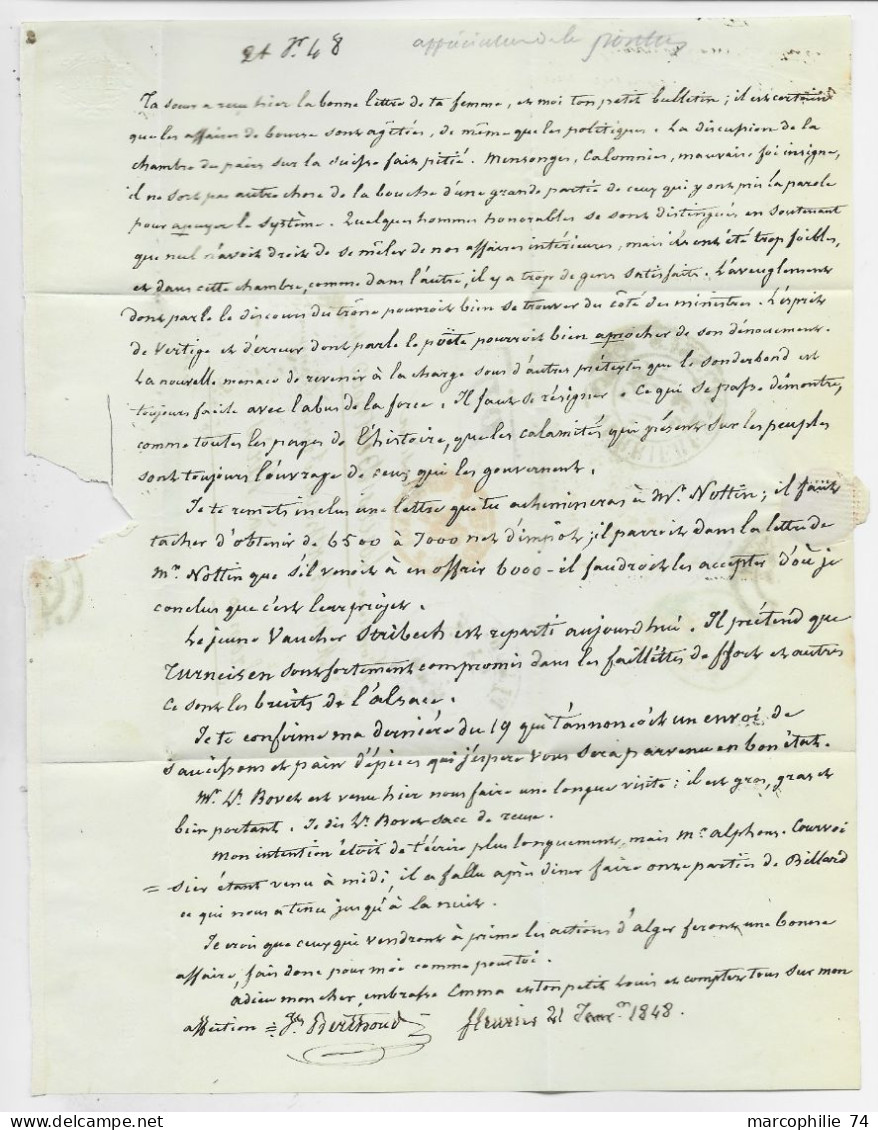 21 Jr. 48 appréciation de la
Ta soeur a reçu hier la bonne lettre de ta femme, et moi ton petit bulletin; il est certain
que les affaires de bourse sont agitées, de même que les politiques. La discussion de la
chambre des pairs sur la suisse fait pitié. Mensonges, Calomnies, mauvaise foi insigne,
il ne sort pas autre chose de la bouche d'une grande partie de ceux qui y ont pris la parole
pour apuyer le système. Quelques hommes honorables se sont distingués en soutenant
que nul n'avoit droit de se mêler de nos affaires intérieures, mais ils ont été trop foibles,
et dans cette chambre, comme dans l'autre, il y a trop de gens satisfaits. L'aveuglement
dont parle le discours du trône pourroit bien se trouver du côté des ministres. L'esprit
de vertige et d'erreur dont parle le poëte pourroit bien aprocher de son dénouement.
La nouvelle menace de revenir à la charge sous d'autres prétextes que le sonderbond est
toujours facile avec l'abus de la force. Il faut se résigner. Ce qui se passe démontre,
comme toutes les pages de l'histoire, que les calamités qui pèsent sur les peuples
sont toujours l'ouvrage de ceux qui les gouvernent.
Je te remets inclus une lettre que tu achemineras à Mr. Nottin; il faut
tacher d'obtenir de 6500 à 7000 net d'impôt; il parroit dans la lettre de
Mr. Nottin que s'il venoit à en offrir 6000 - il faudroit les accepter d'où je
conclus que c'est leur projet.
Le jeune Vaucher Stribech est reparti aujourdhui. Il prétend que
Turneisen sont fortement compromis dans les faillettes de ffort et autres
Ce sont les bruits de l'alsace.
Je te confirme ma dernière du 19 qui t'annonçoit un envoi de
saucissons et pain d'épices qui j'espere vous sera parvenu en bon état.
Mr. Ls. Bovet est venu hier nous faire une longue visite; il est gros, gras et
bien portant. Je dis Ls. Bovet sacc de reuse.
Mon intention étoit de t'écrire plus longuement, mais Mr. alphons. Courvoi
= sier étant venu à midi, il a fallu après diner faire onze parties de Billard
ce qui nous a tenu jusqu'à la nuit.
Je crois que ceux qui vendront à prime les actions d'alger feront une bonne
affaire, fais donc pour moi comme pour toi.
adieu mon cher, embrasse Emma et ton petit Louis et comptez tous sur mon
affection = Berthoud fleurier 21 Janr. 1848.
marcophilie 74